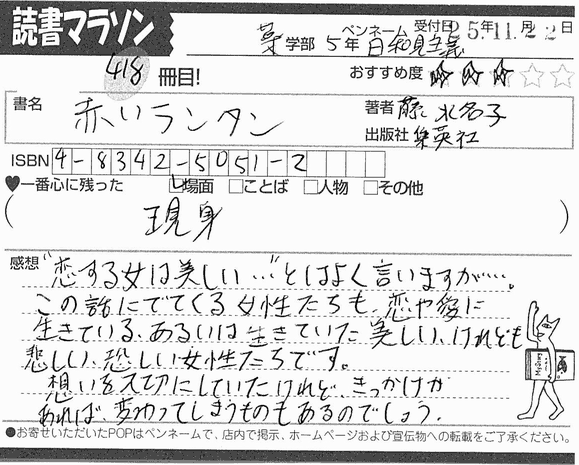 読書マラソン
受付日 '05年11月22日
薬学部 5年 ペンネーム 日和見主義
418 冊目!
おすすめ度 ★★★☆☆
書名 赤いランタン
著者 藤 水名子
出版社 集英社
ISBN 4-8342-5051-2
♥一番心に残った ☑場面 □ことば □人物 □その他
( 現身 )
感想 "恋する女は美しい…"とはよく言いますが……。
この話にでてくる女性たちも、恋や愛に
生きている、あるいは生きていた美しい、けれども
悲しい、恐しい女性たちです。
想いを大切にしていたけれど、きっかけが
あれば、変わってしまうものもあるのでしょう。
●お寄せいただいたPOPはペンネームで、店内で掲示、ホームページおよび宣伝物への転載をご了承ください。